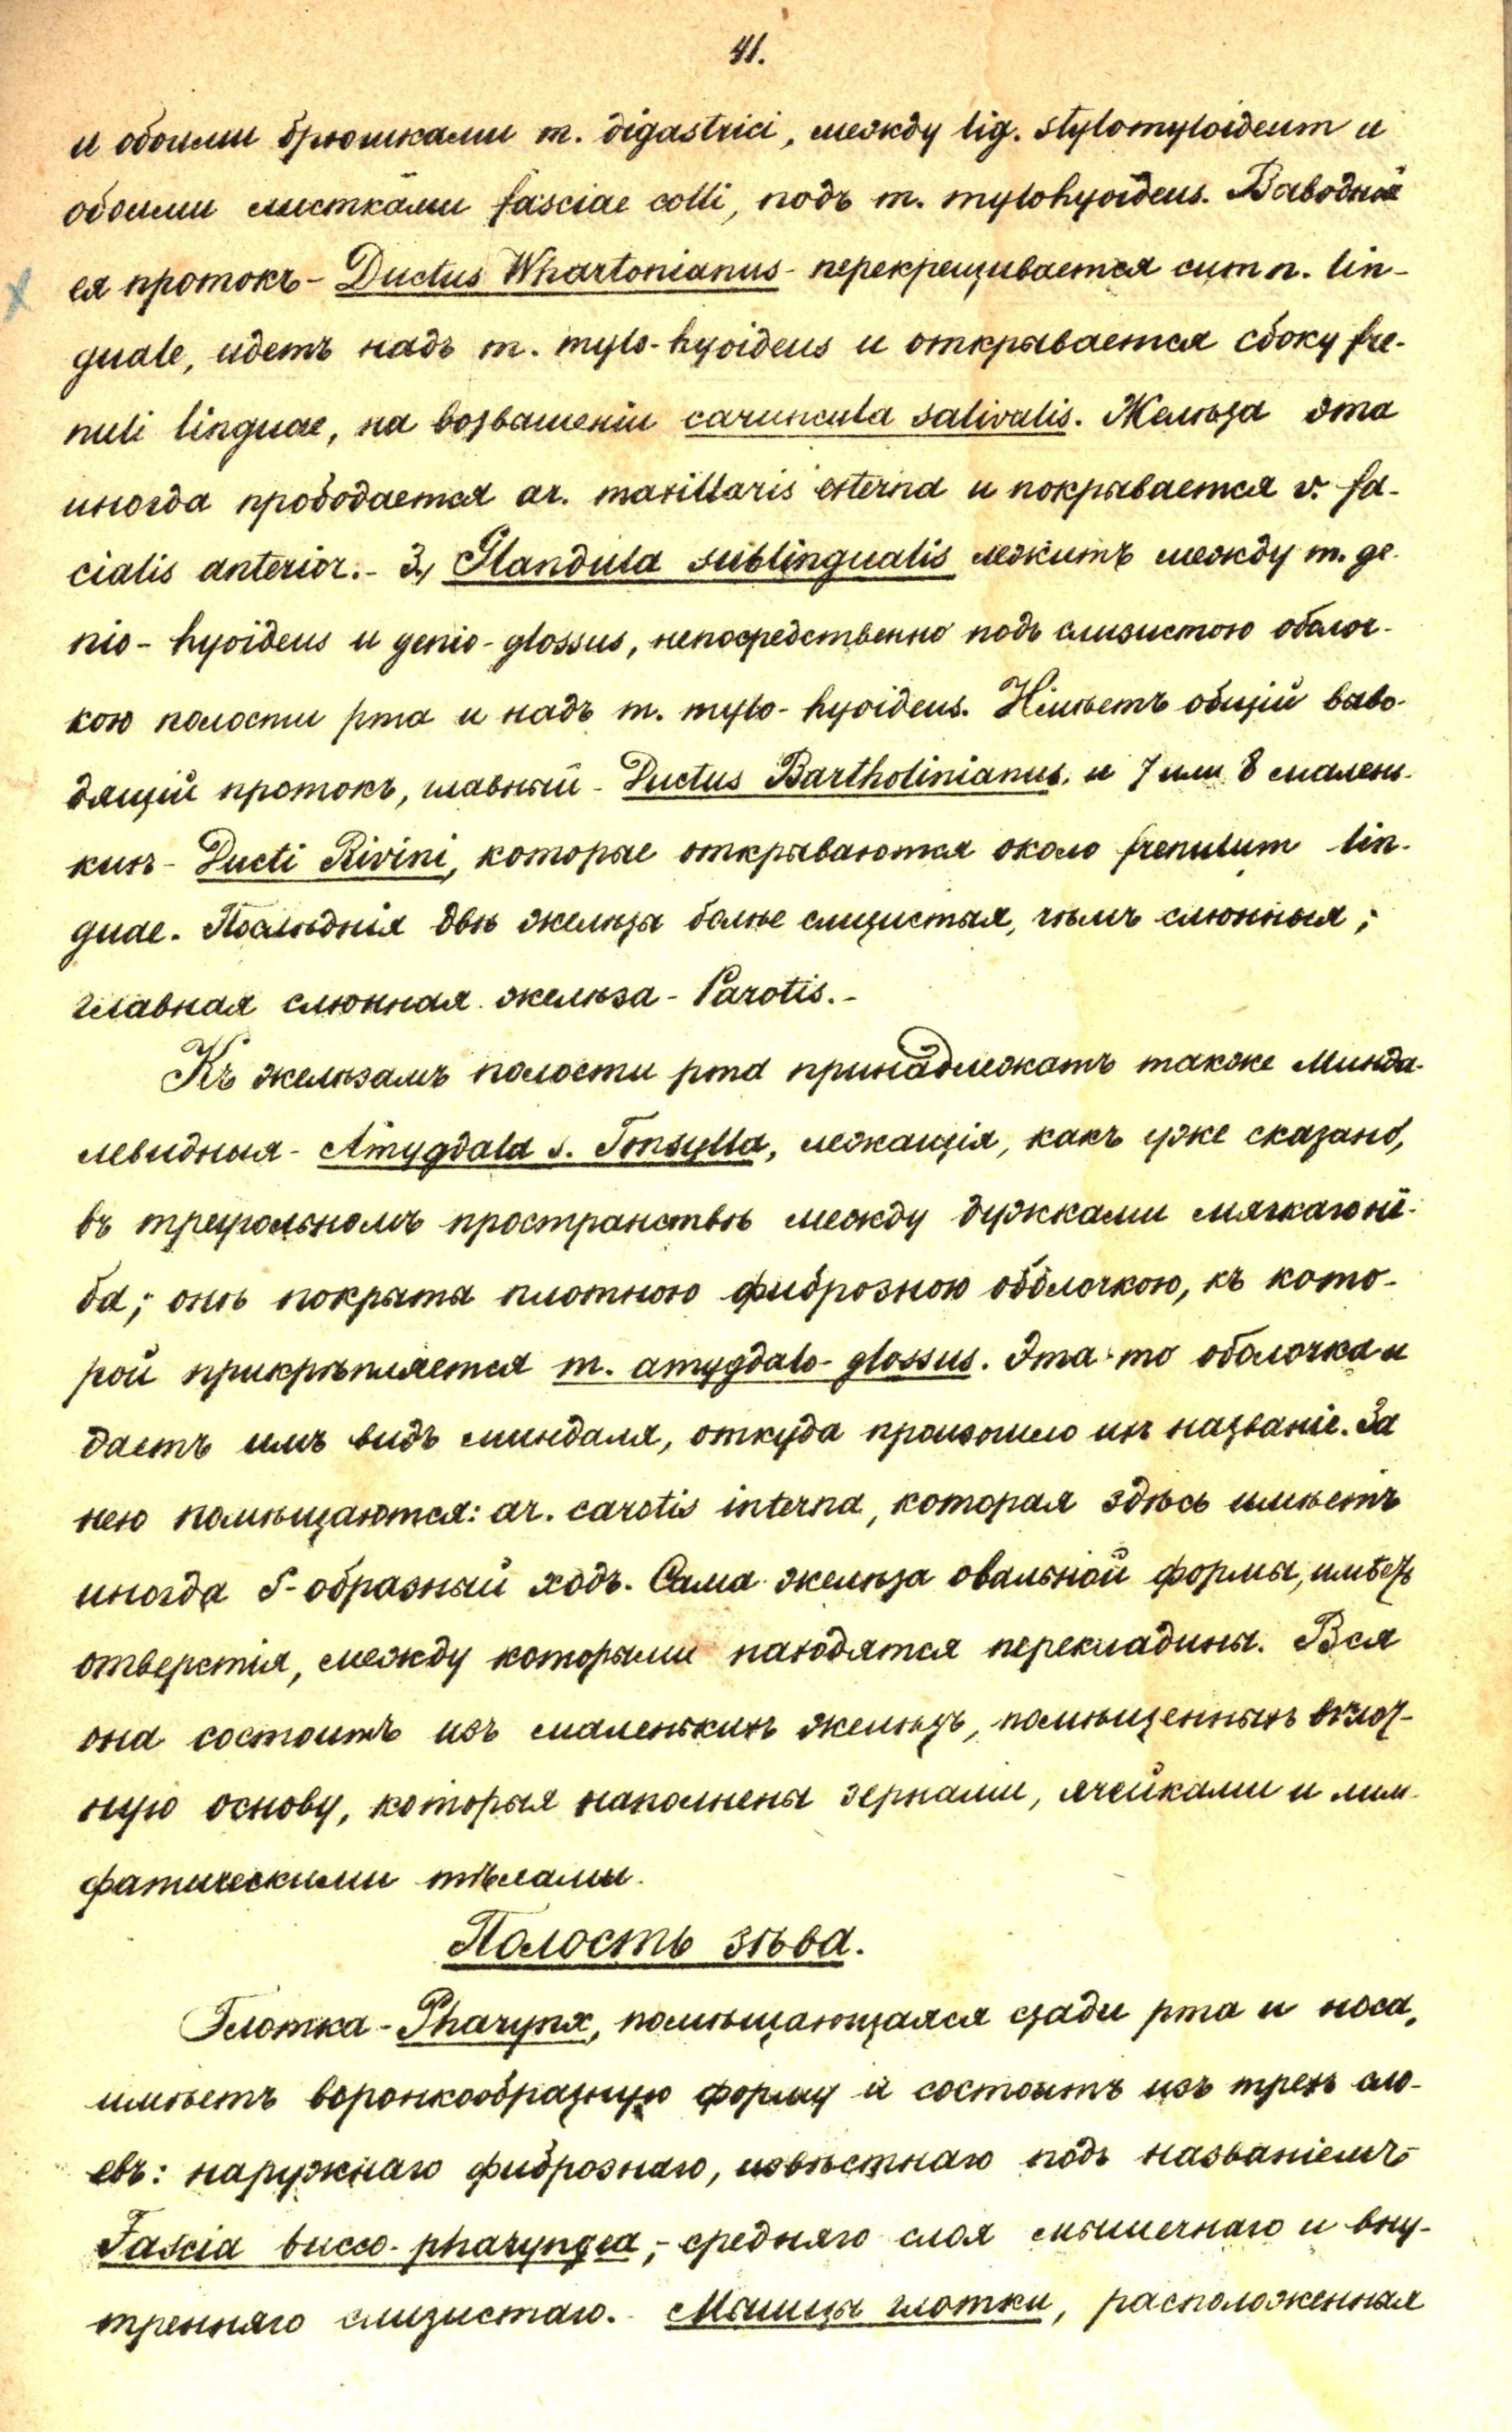 41.
и обоими брюшками m. digastrici, между lig. stylomyloideum и
обоими листками fasciae colli, подъ m. mylohyoideus. Выводной
ея протокъ - Ductus Whartonianus - перекрещивается с n. lin-
guale, идетъ надъ m. mylo-hyoideus и открывается сбоку fre-
nuli linguae, на возвышеніи caruncula salivalis. Желѣза эта
иногда прободается ar. maxillaris externa и покрывается v. fa-
cialis anterior. - 3, Glandula sublingualis лежитъ между m. ge-
nio-hyoideus и genio-glossus, непосредственно подъ слизистою оболоч-
кою полости рта и надъ m. mylo-hyoideus. Имѣетъ общій выво-
дящій протокъ, главный - Ductus Bartholinianus. и 7 или 8 малень-
кихъ - Ducti Rivini, которые открываются около frenulum lin-
guae. Послѣднія двѣ желѣзы болѣе слизистыя, чѣмъ слюнныя;
главная слюнная желѣза - Parotis. -
Къ желѣзамъ полости рта принадлежатъ также Минда-
левидныя - Amygdala s. Tonsylla, лежащія, какъ уже сказано,
въ треугольномъ пространствѣ между дужками мягкаго нё-
ба; онѣ покрыты плотною фиброзною оболочкою, къ кото-
рой прикрѣпляется m. amygdalo-glossus. Эта-то оболочка и
даетъ имъ видъ миндаля, откуда произошло ихъ названіе. За
нею помѣщаются: ar. carotis interna, которая здѣсь имѣетъ
иногда S-образный ходъ. Сама желѣза овальной формы, имѣетъ
отверстія, между которыми находятся перекладины. Вся
она состоитъ изъ маленькихъ желѣзъ, помѣщенныхъ
ную основу, которыя наполнены зернами, ячейками и лим-
фатическими тѣлами.
Полость зѣва.
Глотка - Pharynx, помѣщающаяся сзади рта и носа,
имѣетъ воронкообразную форму и состоитъ изъ трехъ сло-
евъ: наружнаго фибрознаго, извѣстнаго подъ названіемъ -
Fascia bucco-pharyngea, - средняго слоя мышечнаго и вну-
тренняго слизистаго. - Мышцы глотки, расположенныя